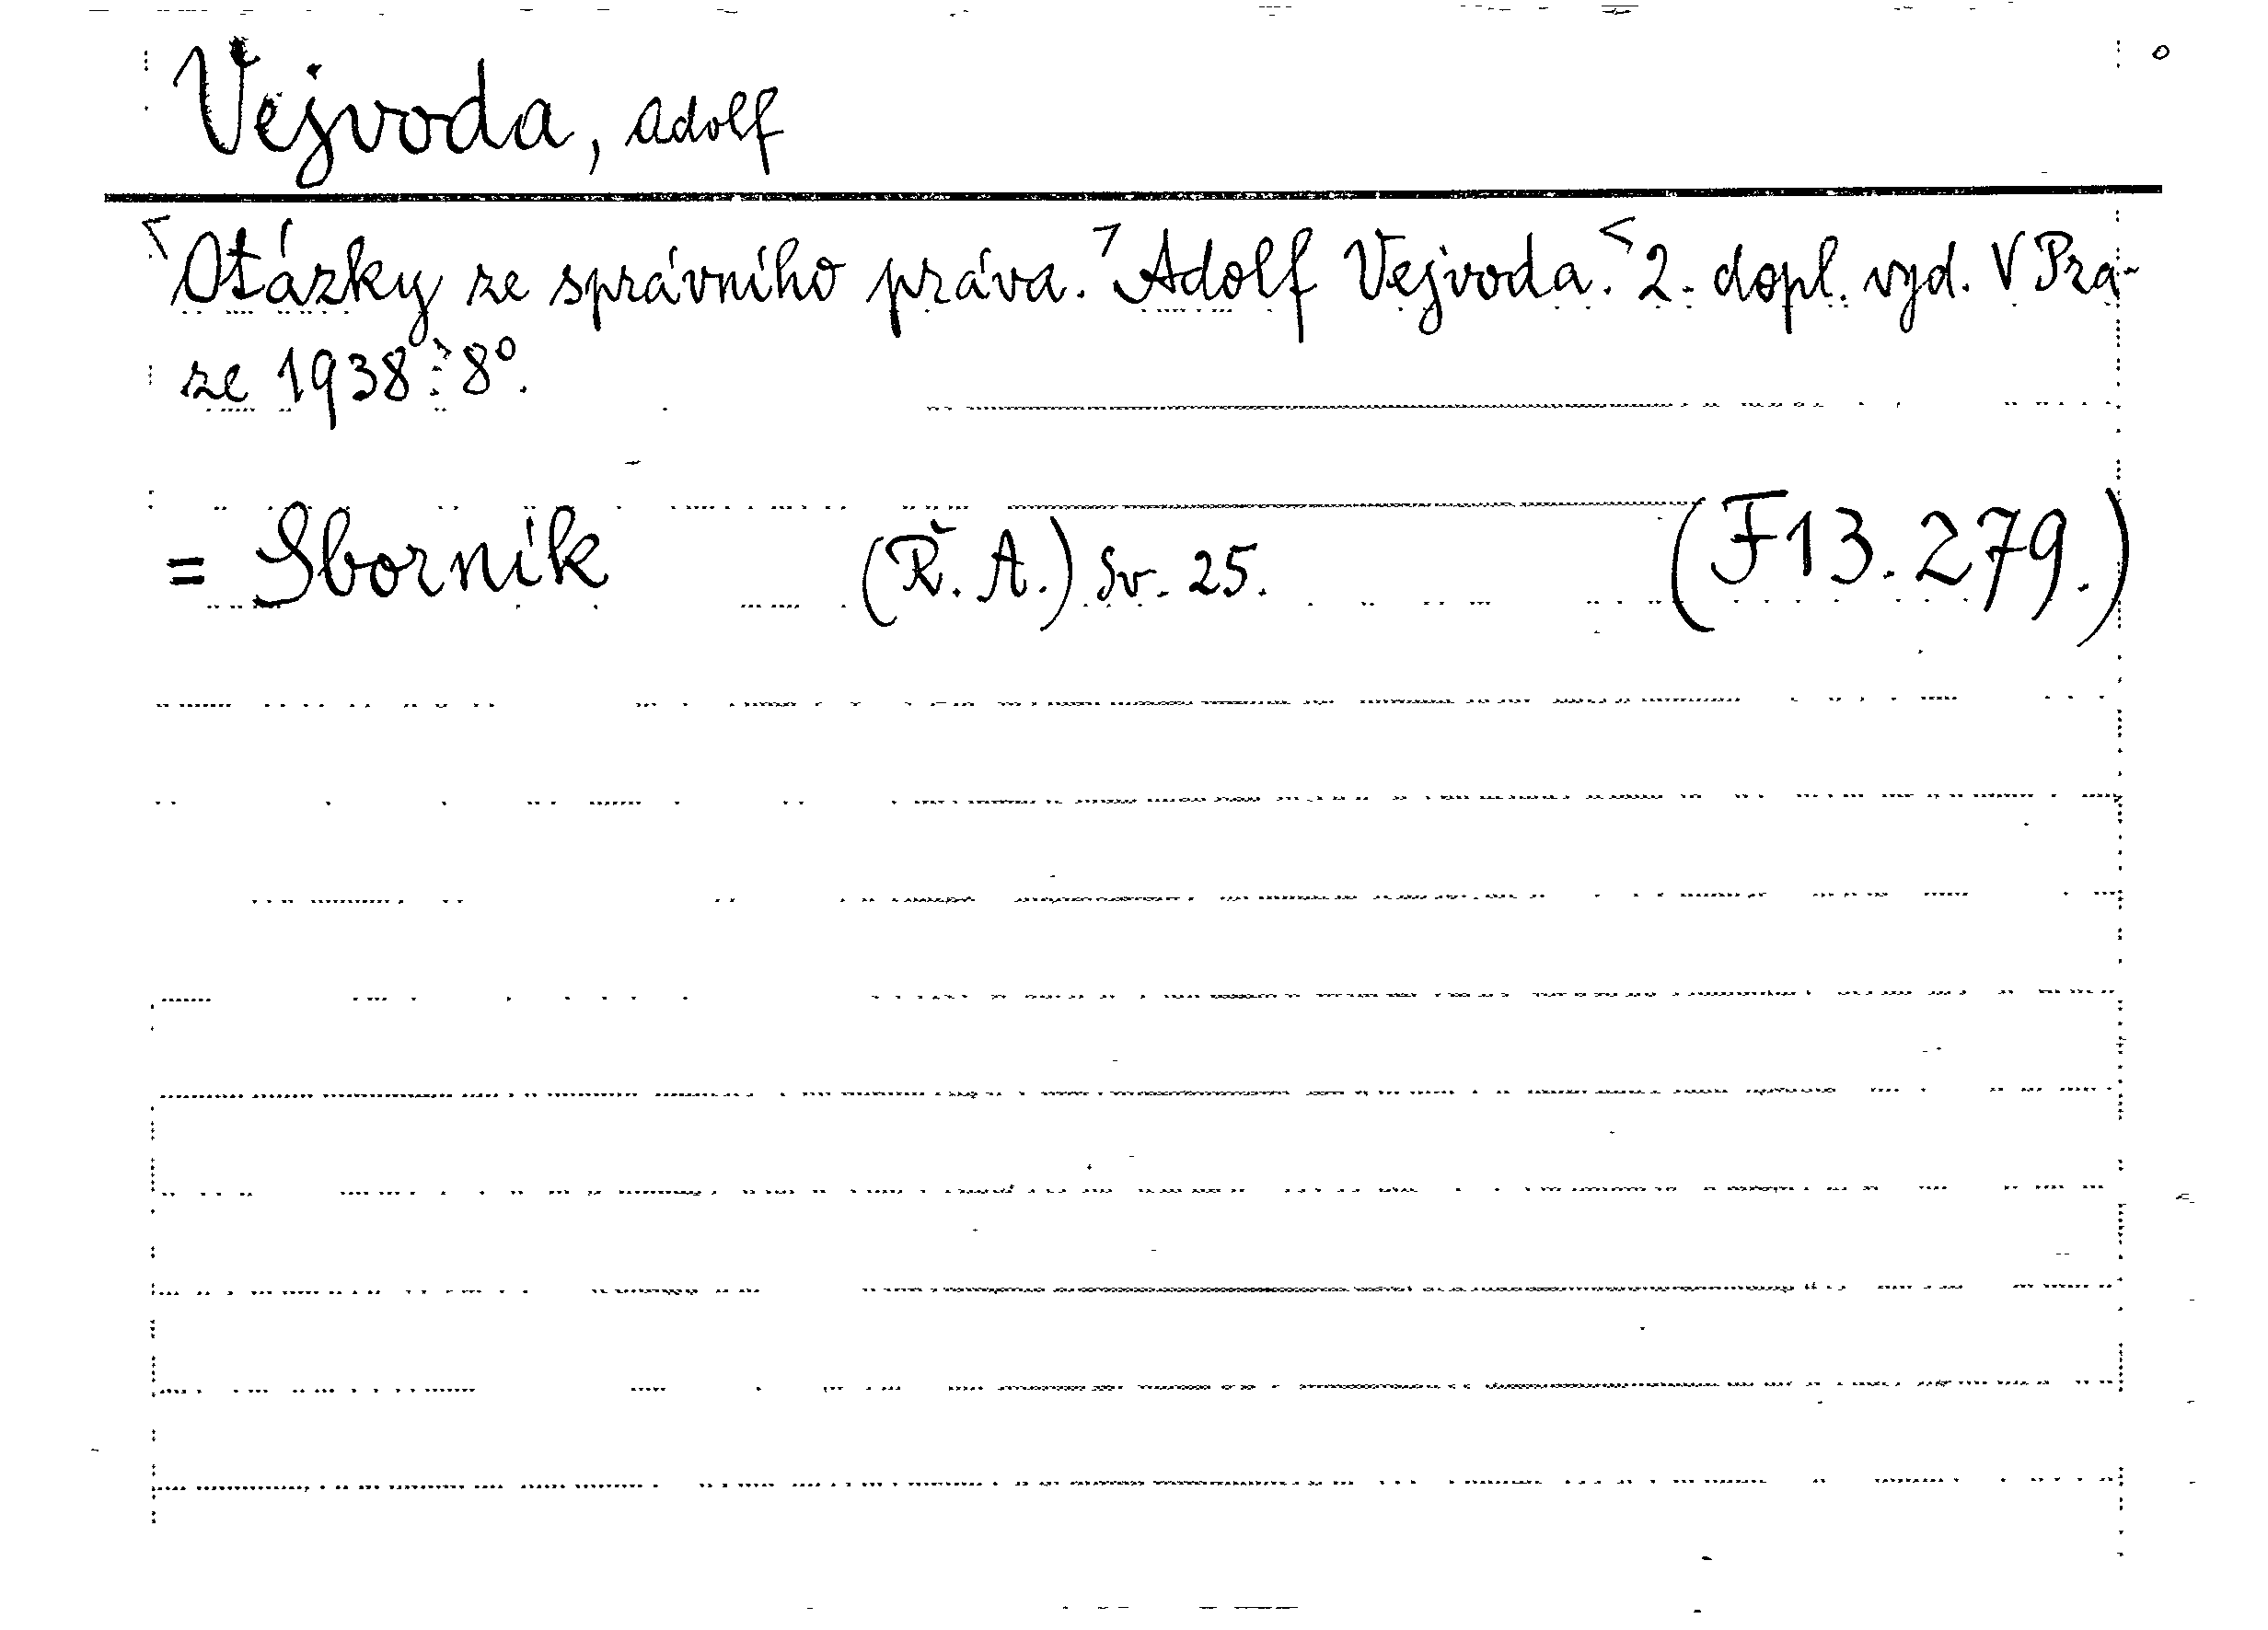 Vejvoda, Adolf
Otázky ze správního práva. Adolf Vejvoda. 2. dopl. vyd. V Pra-
ze 1938. 8°.
= Sborník (Ř. A.) Sv. 25. (F 13.279.)